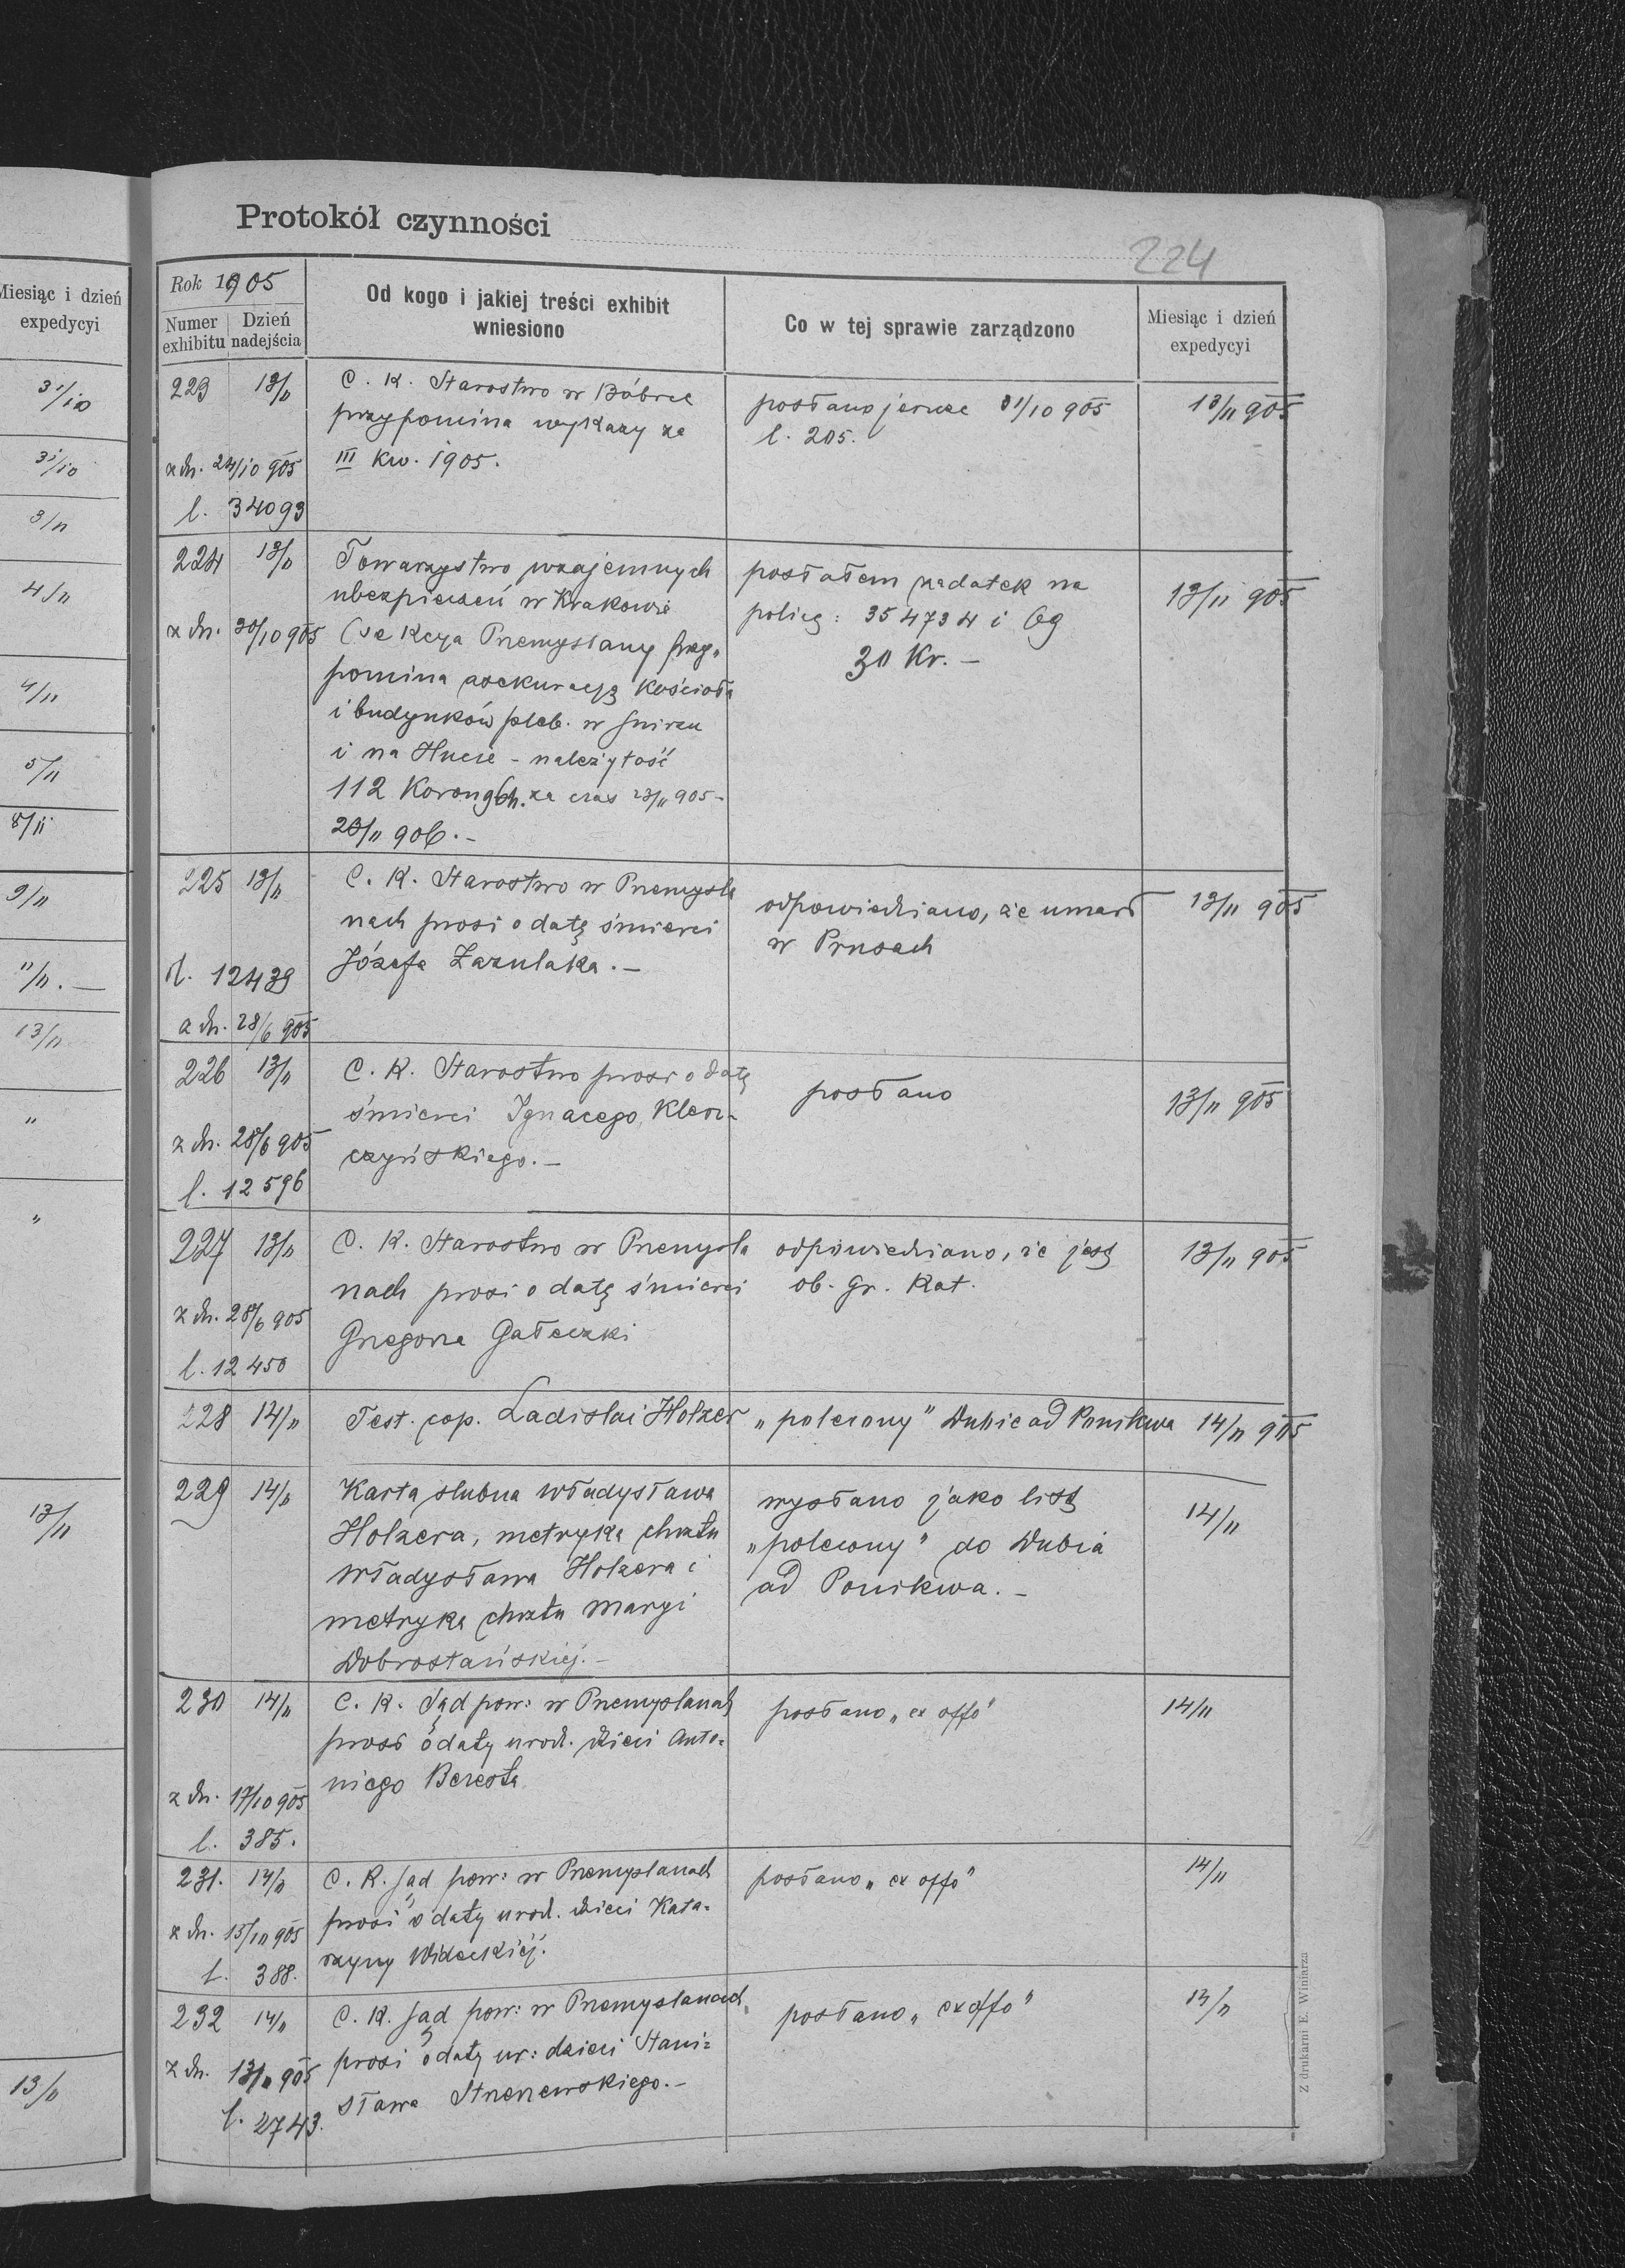 Protokół czynności
224
Miesiąc i dzień
expedycyi
31/10
31/10
3/11
4/11
4/11
5/11
8/11
9/11
11/11. —
13/11
"
"
13/11
13/11
Rok 1905
Numer exhibitu
Dzień nadejścia
Od kogo i jakiej treści exhibit
wniesiono
Co w tej sprawie zarządzono
Miesiąc i dzień
expedycyi
223 13/11
z dn. 24/10 905
l. 34093
C. K. Starostwo w Bóbrce
przypomina wykazy za
III kw. 1905.
posłano jeszcze 31/10 905
l. 205.
13/11 905
224 13/11
z dn. 30/10 905
Towarzystwo wzajemnych
ubezpieczeń w Krakowie
(sekcya Przemyślany przy„
pomina asekuracyę kościoła
i budynków pleb. w
i na Hucie - należytość
112 Koron 96h. za czas 23/11 905 -
23/11 906. -
posłałem zadatek na
policę: 354734 i
30 Kr. -
13/11 905
225 13/11
l. 12439
z dn. 28/6 905
C. K. Starostwo w Przemyśla
nach prosi o datę śmierci
Józefa Zazulaka. -
odpowiedziano, że umarł
w Prusach
13/11 905
226 13/11
z dn. 28/6 905
l. 12596
C. K. Starostwo prosi o datę
śmierci Ignacego Klem-
czyńskiego. -
posłano
13/11 905
227 13/11
z dn. 28/6 905
l. 12450
C. K. Starostwo w Przemyśla
nach prosi o datę śmierci
Grzegorza Gałeczki
odpowiedziano, że jest
ob. gr. Kat.
13/11 905
228 14/11
Test. cop. Ladislai Holzer
„polecony" Dubie ad Ponikwa
14/11 905
229 14/11
Karta ślubna Władysława
Holzera, metryka chrztu
Władysława Holzera i
metryka chrztu Maryi
Dobrostańskiej. -
wysłano jako list
„polecony" do Dubia
ad Ponikwa. -
14/11
230 14/11
z dn. 17/10 905
l. 385.
C. K. Sąd pow: w Przemyślanach
prosi o daty urod. dzieci Anto=
niego Beresta
posłano „ex offo"
14/11
231. 14/11
z dn. 15/10 905
l. 388.
C. K. Sąd pow: w Przemyślanach
prosi o daty urod. dzieci Kata=
rzyny Wideckiej.
posłano „ex offo"
14/11
232 14/11
z dn. 13/11 905
l. 2743.
C. K. Sąd pow: w Przemyślanach
prosi o daty ur: dzieci Stani=
sława Strzerzewskiego. -
posłano „ex offo"
14/11
Z drukarni E. Winiarza